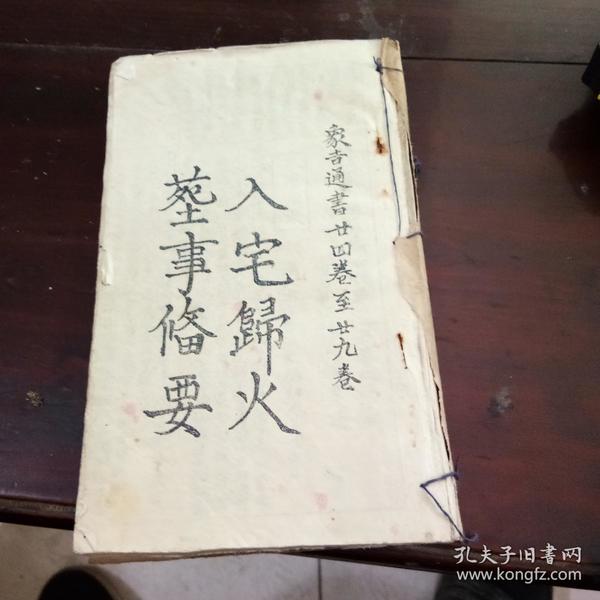 象吉通書廿四卷至廿九卷
入宅歸火
塟事俻要
孔夫子旧书网
www.kongfz.com